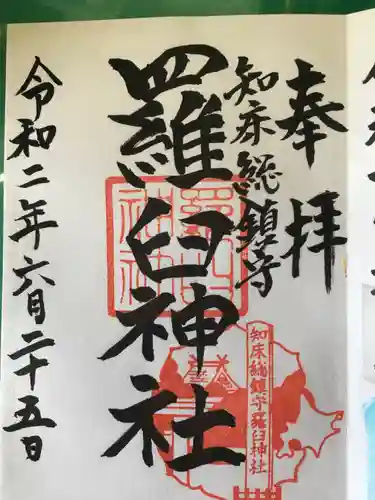 奉拝
知床総鎮守
羅臼神社
令和二年六月二十五日
知床総鎮守羅臼神社